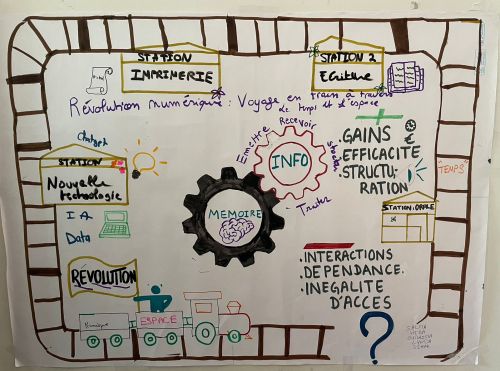 STATION
IMPRIMERIE
STATION 2
Ecriture
Révolution numérique : Voyage en train à travers
le temps et l'espace
Emettre
Recevoir
Stocker
Traiter
INFO
MEMOIRE
+
GAINS €
• EFFICACITÉ
• STRUCTU-
RATION
TEMPS
STATION : ORALE
Chatgpt
STATION
Nouvelle
technologie
IA
Data
RÉVOLUTION
ESPACE
Numérique
• INTERACTIONS
• DEPENDANCE.
• INEGALITE
D'ACCES
?